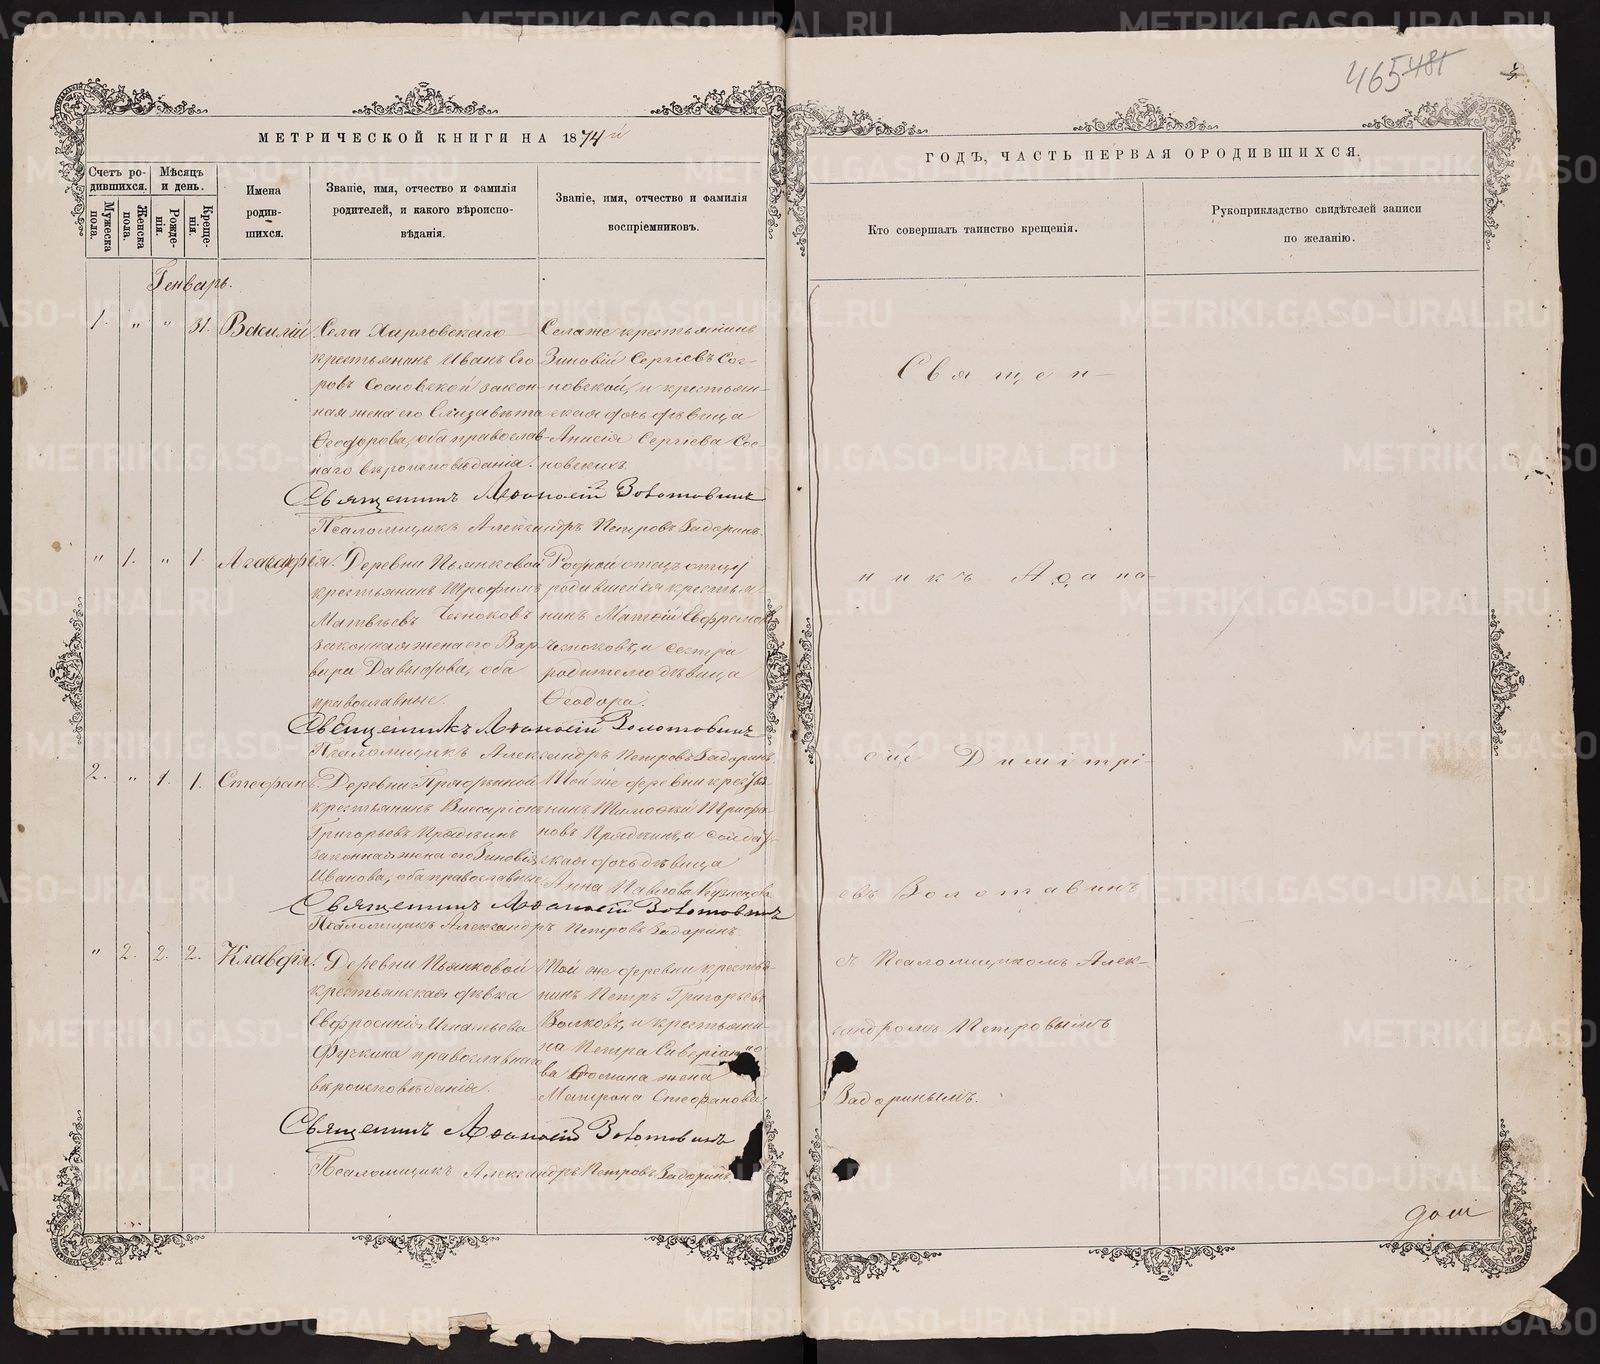 465 481
МЕТРИЧЕСКОЙ КНИГИ НА 1874й
Счетъ родившихся.
Мужеска пола.
Женска пола.
Мѣсяцъ и день.
Рожденія.
Крещенія.
Имена родившихся.
Званіе, имя, отчество и фамилія
родителей, и какого вѣроиспо-
вѣданія.
Званіе, имя, отчество и фамилія
воспріемниковъ.
Генварь.
1. " " 31. Василій
Села Харловскаго
крестьянинъ Иванъ Его
ровъ Сосновской закон-
ная жена его Елизавета
Ѳеодорова, оба православ-
наго вѣроисповѣданія.
Селаже крестьянинъ
Зиновій Сергіевъ Сос-
новской, и крестьян-
ская дочь дѣвица
Анисія Сергіева Сос-
новскихъ
Священникъ Аѳанасій Золотавинъ
Псаломщикъ Александръ Петровъ Задоринъ.
" 1. " 1. Агафія.
Деревни Пьянковой
крестьянинъ Трофимъ
Матвѣевъ Чесноковъ
законная жена его Вар
вара Давыдова, оба
православные.
Родной отецъ отцу
родившейся крестья
нинъ Матвій Ефремовъ
Чесноковъ, и сестра
родителю дѣвица
Ѳеодора.
Священникъ Аѳанасій Золотавинъ
Псаломщикъ Александръ Петровъ Задоринъ
2. " 1. 1. Стефанъ
Деревни Прядеиной
крестьянинъ Виссаріонъ
Григорьевъ Прядеинъ
законная жена его Зиновія
Иванова, оба православные
Той же деревни крестья
нинъ Тимофей Трифо-
новъ Прядеинъ, и солдат-
ская дочь дѣвица
Анна Павлова Кузнецова
Священникъ Аѳанасій Золотавинъ
Псаломщикъ Александръ Петровъ Задоринъ.
" 2. 2. 2. Клавдія.
Деревни Пьянковой
крестьянская дѣвка
Евфросинія Игнатьева
православнаго
вѣроисповѣданія.
Той же деревни крестья
нинъ Петръ Григорьевъ
Волковъ, и крестьяни-
на Петра Сиверіано
ва Ѳомина жена
Матрона Стефанова.
Священникъ Аѳанасій Золотавинъ
Псаломщикъ Александръ Петровъ Задоринъ.
ГОДЪ, ЧАСТЬ ПЕРВАЯ О РОДИВШИХСЯ.
Кто совершалъ таинство крещенія.
Рукоприкладство свидѣтелей записи
по желанію.
Священ-
никъ Аѳана-
сій Димитрі-
евъ Золотавинъ
съ Псаломщикомъ Алек-
сандромъ Петровымъ
Задоринымъ.
METRIKI.GASO-URAL.RU